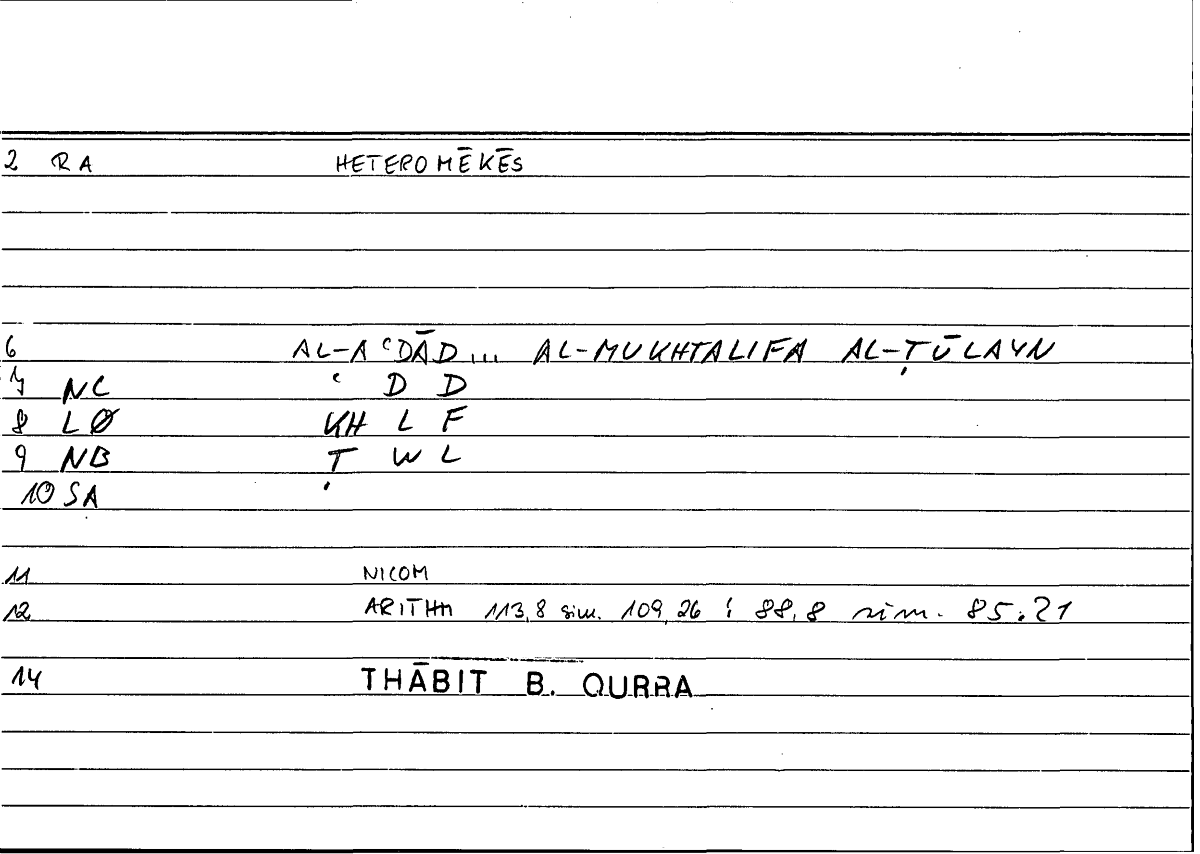 2 RA HETEROMĒKĒS
6 AL-AʿDĀD... AL-MUKHTALIFA AL-ṬŪLAYN
7 NC ʿ D D
8 LØ KH L F
9 NB Ṭ W L
10 SA
11 NICOM
12 ARITHM 113,8 sim. 109,26 ; 88,8 sim. 85,21
14 THĀBIT B. QURRA